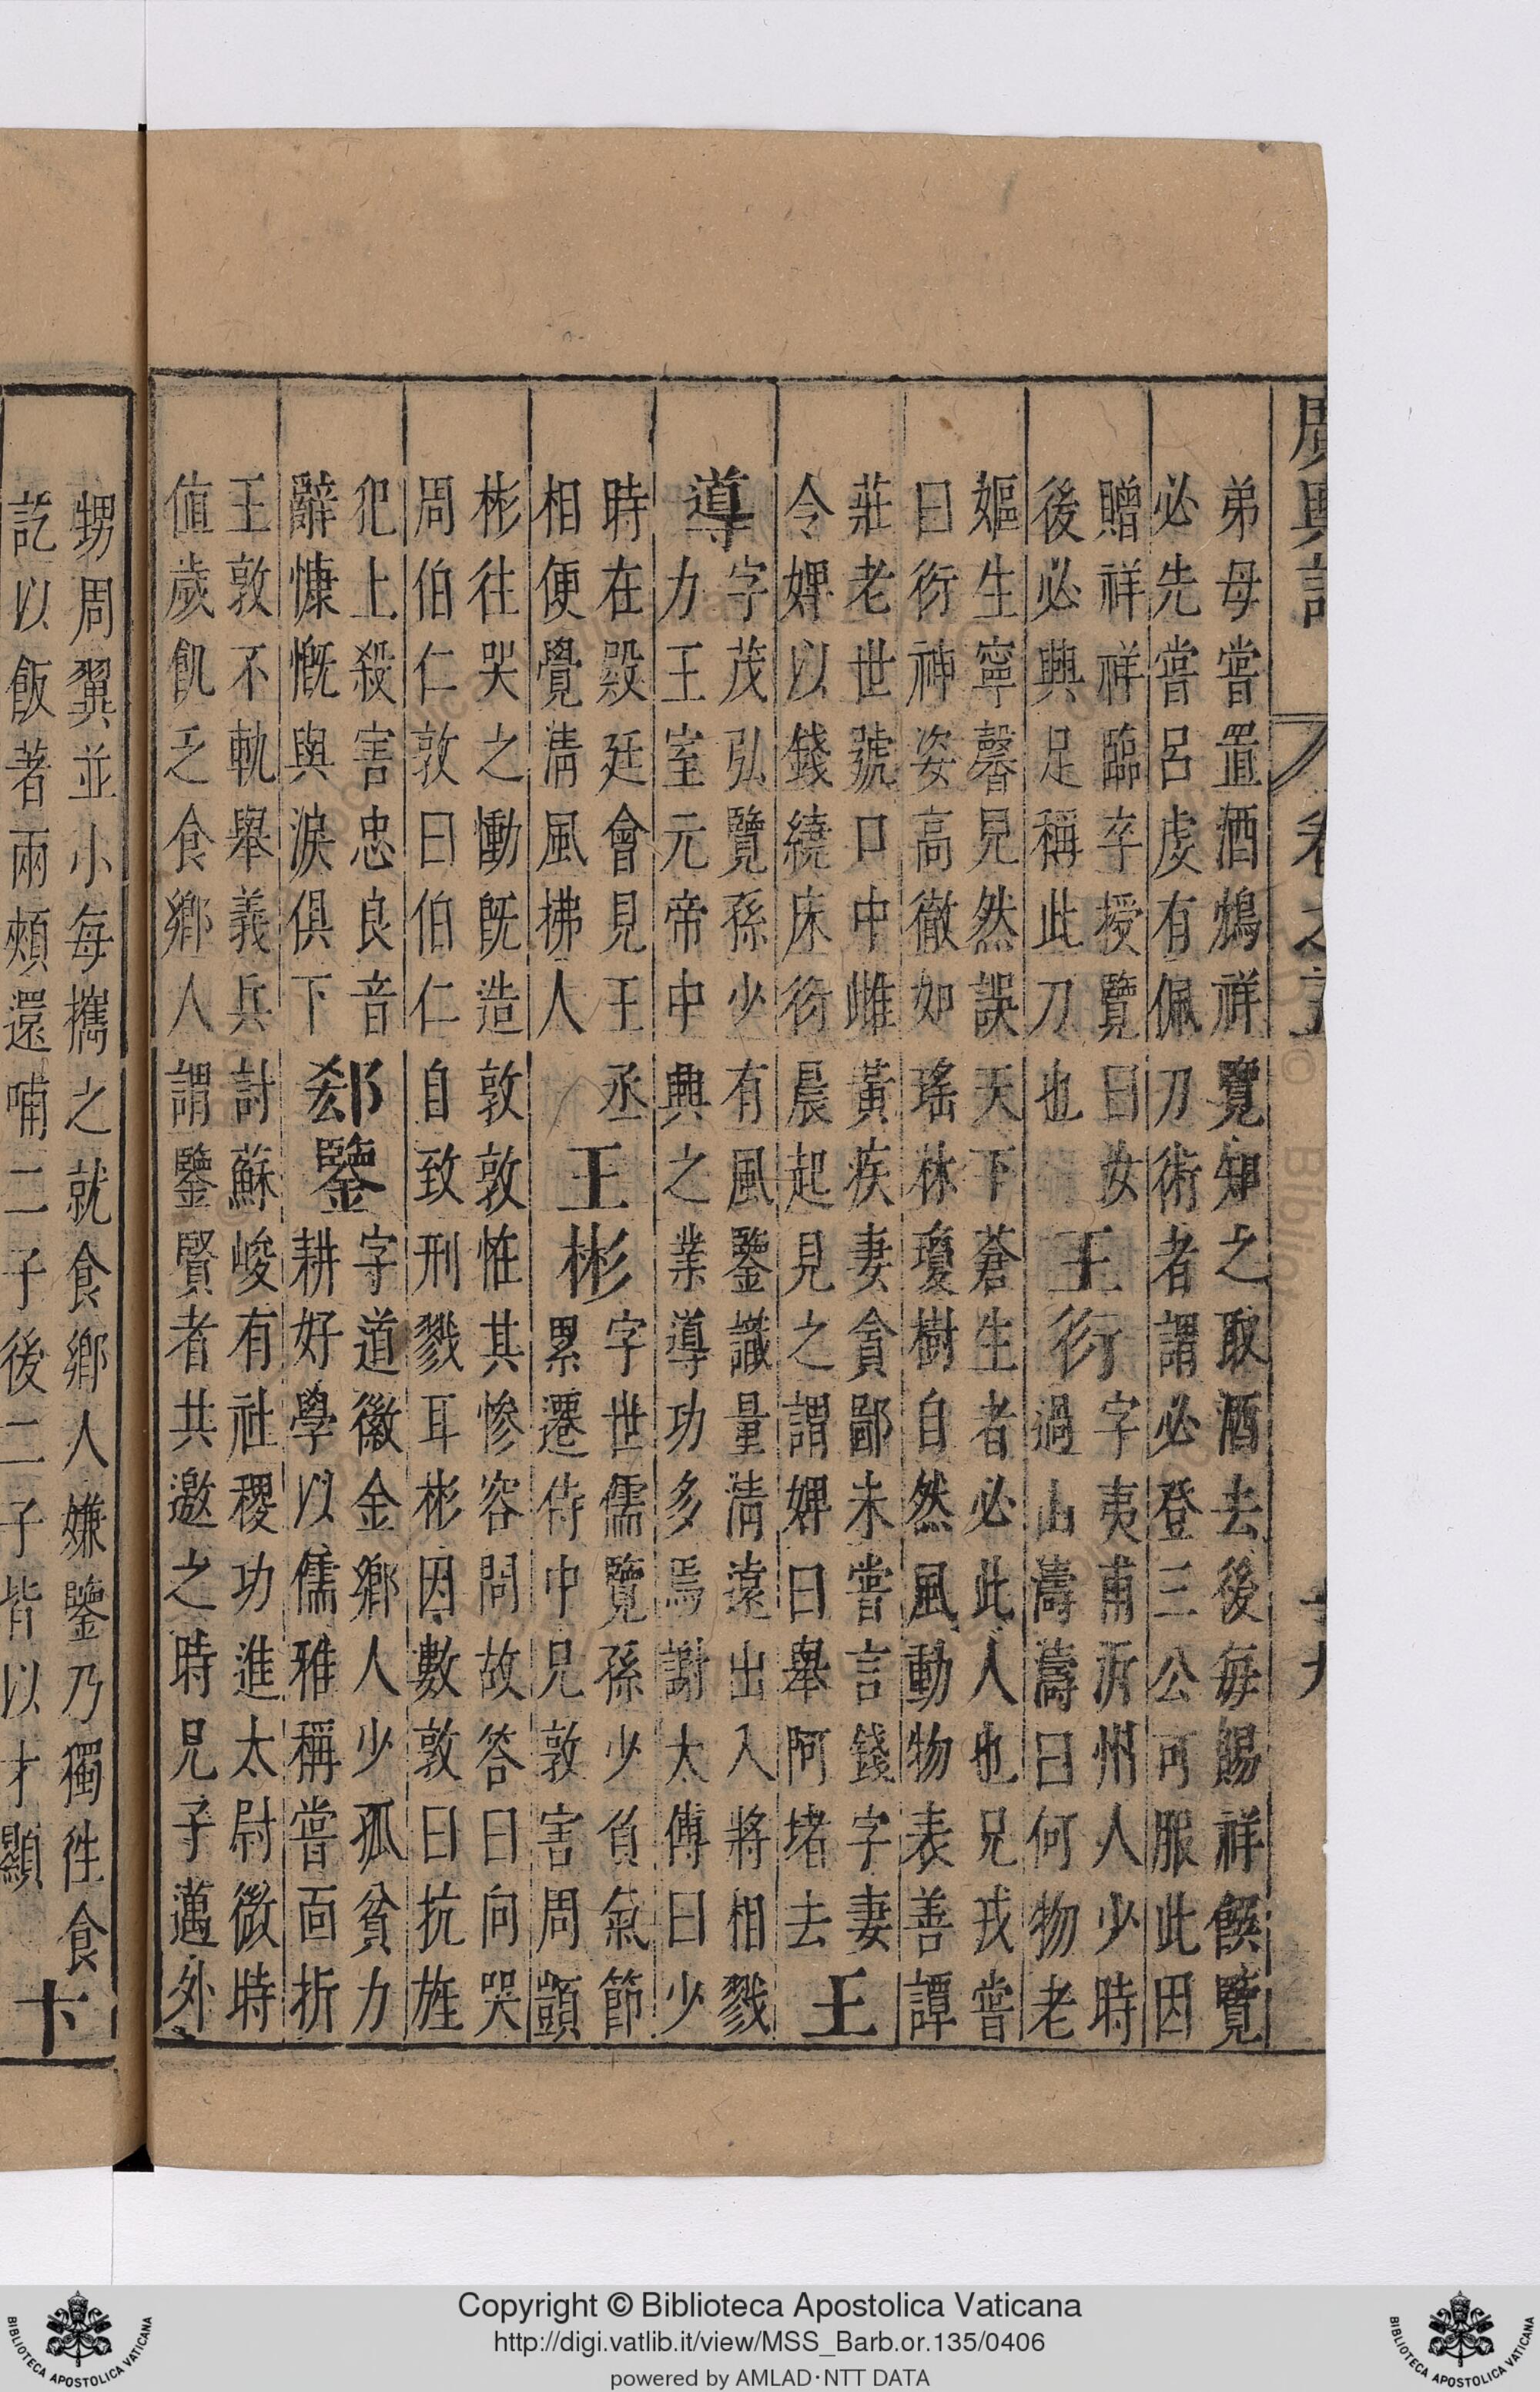 廣輿記 卷之 十九
弟母嘗置酒鴆祥覽知之取酒去後每賜祥饌覽
必先嘗呂虔有佩刀術者謂必登三公可服此因
贈祥祥臨卒授覽曰女
後必興足稱此刀也
王衍
字夷甫沂州人少時
過山濤濤曰何物老
嫗生寧馨兒然誤天下蒼生者必此人也兄戎嘗
曰衍神姿高徹如瑤林瓊樹自然風動物表善譚
莊老世號口中雌黃疾妻貪鄙未嘗言錢字妻
令婢以錢繞床衍晨起見之謂婢曰舉阿堵去
王
導
字茂弘覽孫少有風鑒識量清遠出入將相戮
力王室元帝中興之業導功多焉謝太傅曰少
時在殿廷會見王丞
相便覺清風拂人
王彬
字世儒覽孫少負氣節
累遷侍中兄敦害周顗
彬往哭之慟既造敦敦恠其慘容問故答曰向哭
周伯仁敦曰伯仁自致刑戮耳彬因數敦曰抗旌
犯上殺害忠良音
辭慷慨與淚俱下
郄鑒
字道徽金鄉人少孤貧力
耕好學以儒雅稱嘗面折
王敦不軌舉義兵討蘇峻有社稷功進太尉微時
值歲飢乏食鄉人謂鑒賢者共邀之時兄子邁外
甥周翼並小每攜之就食鄉人嫌鑒乃獨往食
訖以飯著兩頰還哺二子後二子皆以才顯
卞
Copyright © Biblioteca Apostolica Vaticana
http://digi.vatlib.it/view/MSS_Barb.or.135/0406
powered by AMLAD·NTT DATA
BIBLIOTECA APOSTOLICA VATICANA
BIBLIOTECA APOSTOLICA VATICANA